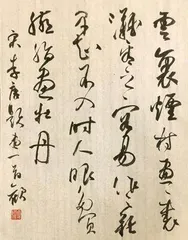 雪裏煙村雨裏
灘看之容易作之難
早知不入時人眼多買
臙脂畫牡丹
宋李唐題畫一首